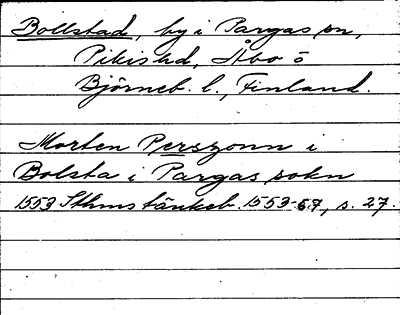 Bollstad, by i Pargas sn,
Pikis hd, Åbo ö
Björneb. l., Finland.
Morten Perszonn i
Bolsta i Pargas sokn
1553 Sthms tänkeb. 1553-67, s. 27.